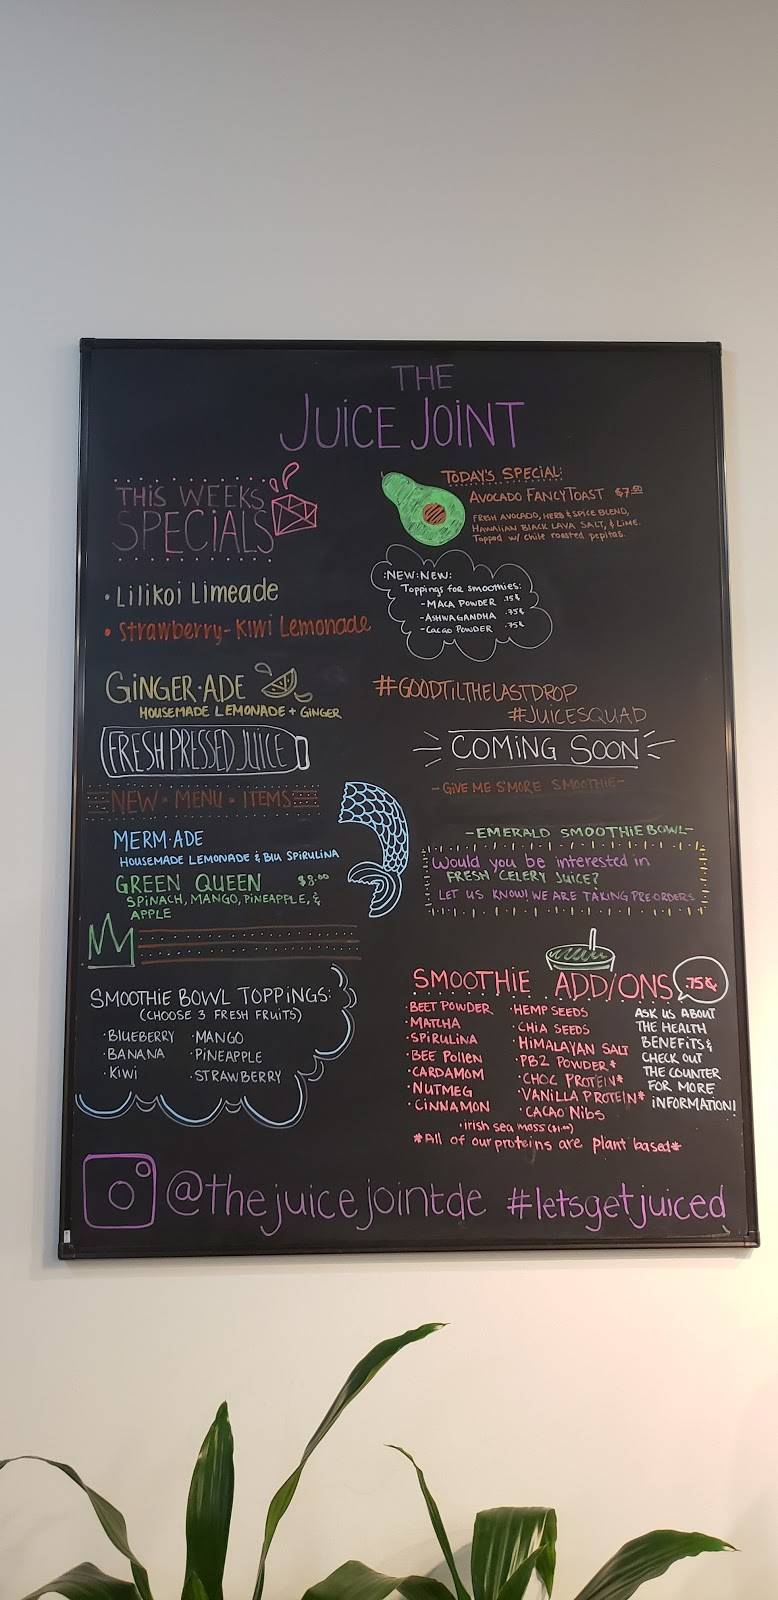 THE
JUICE JOINT
THIS WEEKS
SPECIALS
• Lilikoi Limeade
• Strawberry-Kiwi Lemonade
TODAY'S SPECIAL:
AVOCADO FANCY TOAST $7.50
FRESH AVOCADO, HERB & SPICE BLEND,
HAWAIIAN BLACK LAVA SALT, & LIME.
Topped w/ chile roasted pepitas.
:NEW:NEW:
Toppings for smoothies:
-MACA POWDER
-ASHWAGANDHA
-CACAO POWDER .75¢
GINGER-ADE
HOUSEMADE LEMONADE + GINGER
FRESH PRESSED JUICE
NEW • MENU • ITEMS
MERM-ADE
HOUSEMADE LEMONADE & BLU SPIRULINA
GREEN QUEEN $8.00
SPINACH, MANGO, PINEAPPLE, &
APPLE
#GOODTILTHELASTDROP
#JUICESQUAD
COMING SOON
-GIVE ME S'MORE SMOOTHIE-
-EMERALD SMOOTHIE BOWL-
Would you be interested in
FRESH CELERY JUICE?
LET US KNOW! WE ARE TAKING PREORDERS
SMOOTHIE BOWL TOPPINGS:
(CHOOSE 3 FRESH FRUITS)
• BLUEBERRY • MANGO
• BANANA • PINEAPPLE
• KIWI • STRAWBERRY
SMOOTHIE ADD/ONS .75¢
• BEET POWDER
• MATCHA
• SPIRULINA
• BEE Pollen
• CARDAMOM
• NUTMEG
• CINNAMON
• HEMP SEEDS
• CHIA SEEDS
• HIMALAYAN SALT
• PB2 POWDER*
• CHOC PROTEIN*
• VANILLA PROTEIN*
• CACAO Nibs
• irish sea moss ($1.00)
*All of our proteins are plant based*
ASK US ABOUT
THE HEALTH
BENEFITS &
CHECK OUT
THE COUNTER
FOR MORE
INFORMATION!
@thejuicejointde #letsgetjuiced